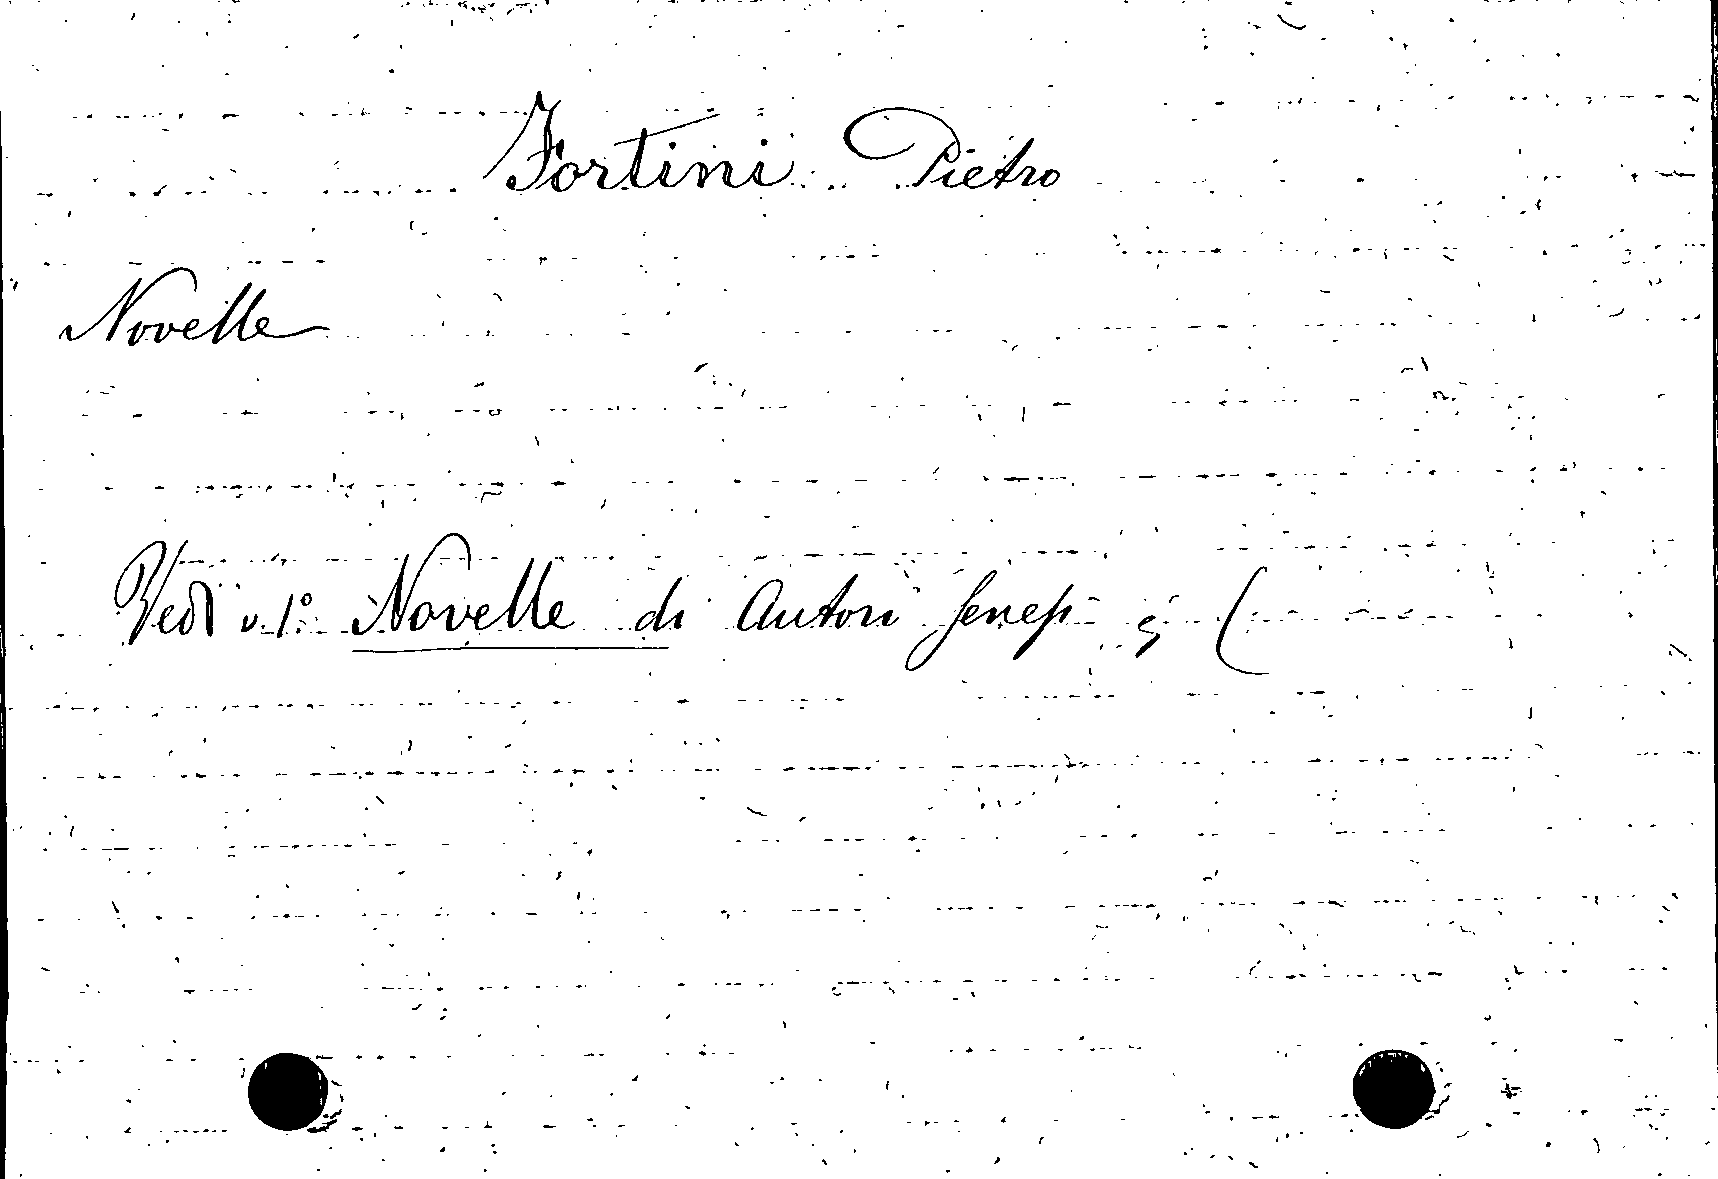 Fortini Pietro
Novelle
Vedi v. 1º Novelle di Autori Senesi